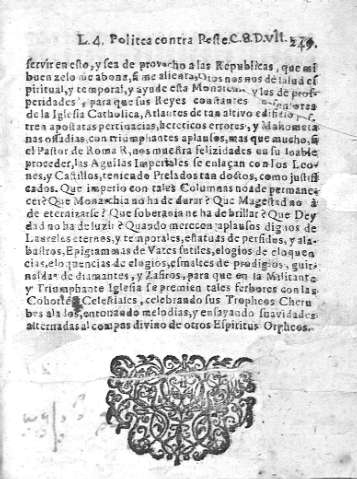 L. 4. Politea contra Peste. C. 8. D. Vlt. 249.
servir en esto, y sea de provecho a las Republicas, que mi
buen zelo me abona, si me alienta, Dios nos nos de salud es
piritual, y temporal, y ayude esta Monarchia y los de pros-
peridades, para que sus Reyes constantes
de la Iglesia Catholica, Atlantes de tan altivo edificio
tren apostatas pertinacias, hereticos errores, y Mahometa
nas ossadias, con triumphantes aplausos, mas que mucho, si
el Pastor de Roma R, nos muestra felizidades en su loable
proceder, las Aguilas Imperiales se enlaçan con los Leo-
nes, y Castillos, teniendo Prelados tan doctos, como justifi
cados. Que imperio con tales Columnas no à de permane-
cer? Que Monarchia no ha de durar? Que Magestad no à
de eternizarse? Que soberania ne ha de brillar? Que Dey
dad no ha de luzir? Quando merecen aplausos dignos de
Laureles eternos, y temporales, estatuas de perfidos, y ala-
bastros, Epigramas de Vates sutiles, elogios de eloquen
cias, eloquencias de elogios, esmaltes de prodigios, guir-
naldas de diamantes, y Zafiros, para que en la Militante
y Triumphante Iglesia se premien tales ferbores con las
Cohortes Celestiales, celebrando sus Tropheos Cheru
bes alados, entonando melodias, y ensayando suavidades
alternadas al compas divino de otros Espiritus Orpheos.